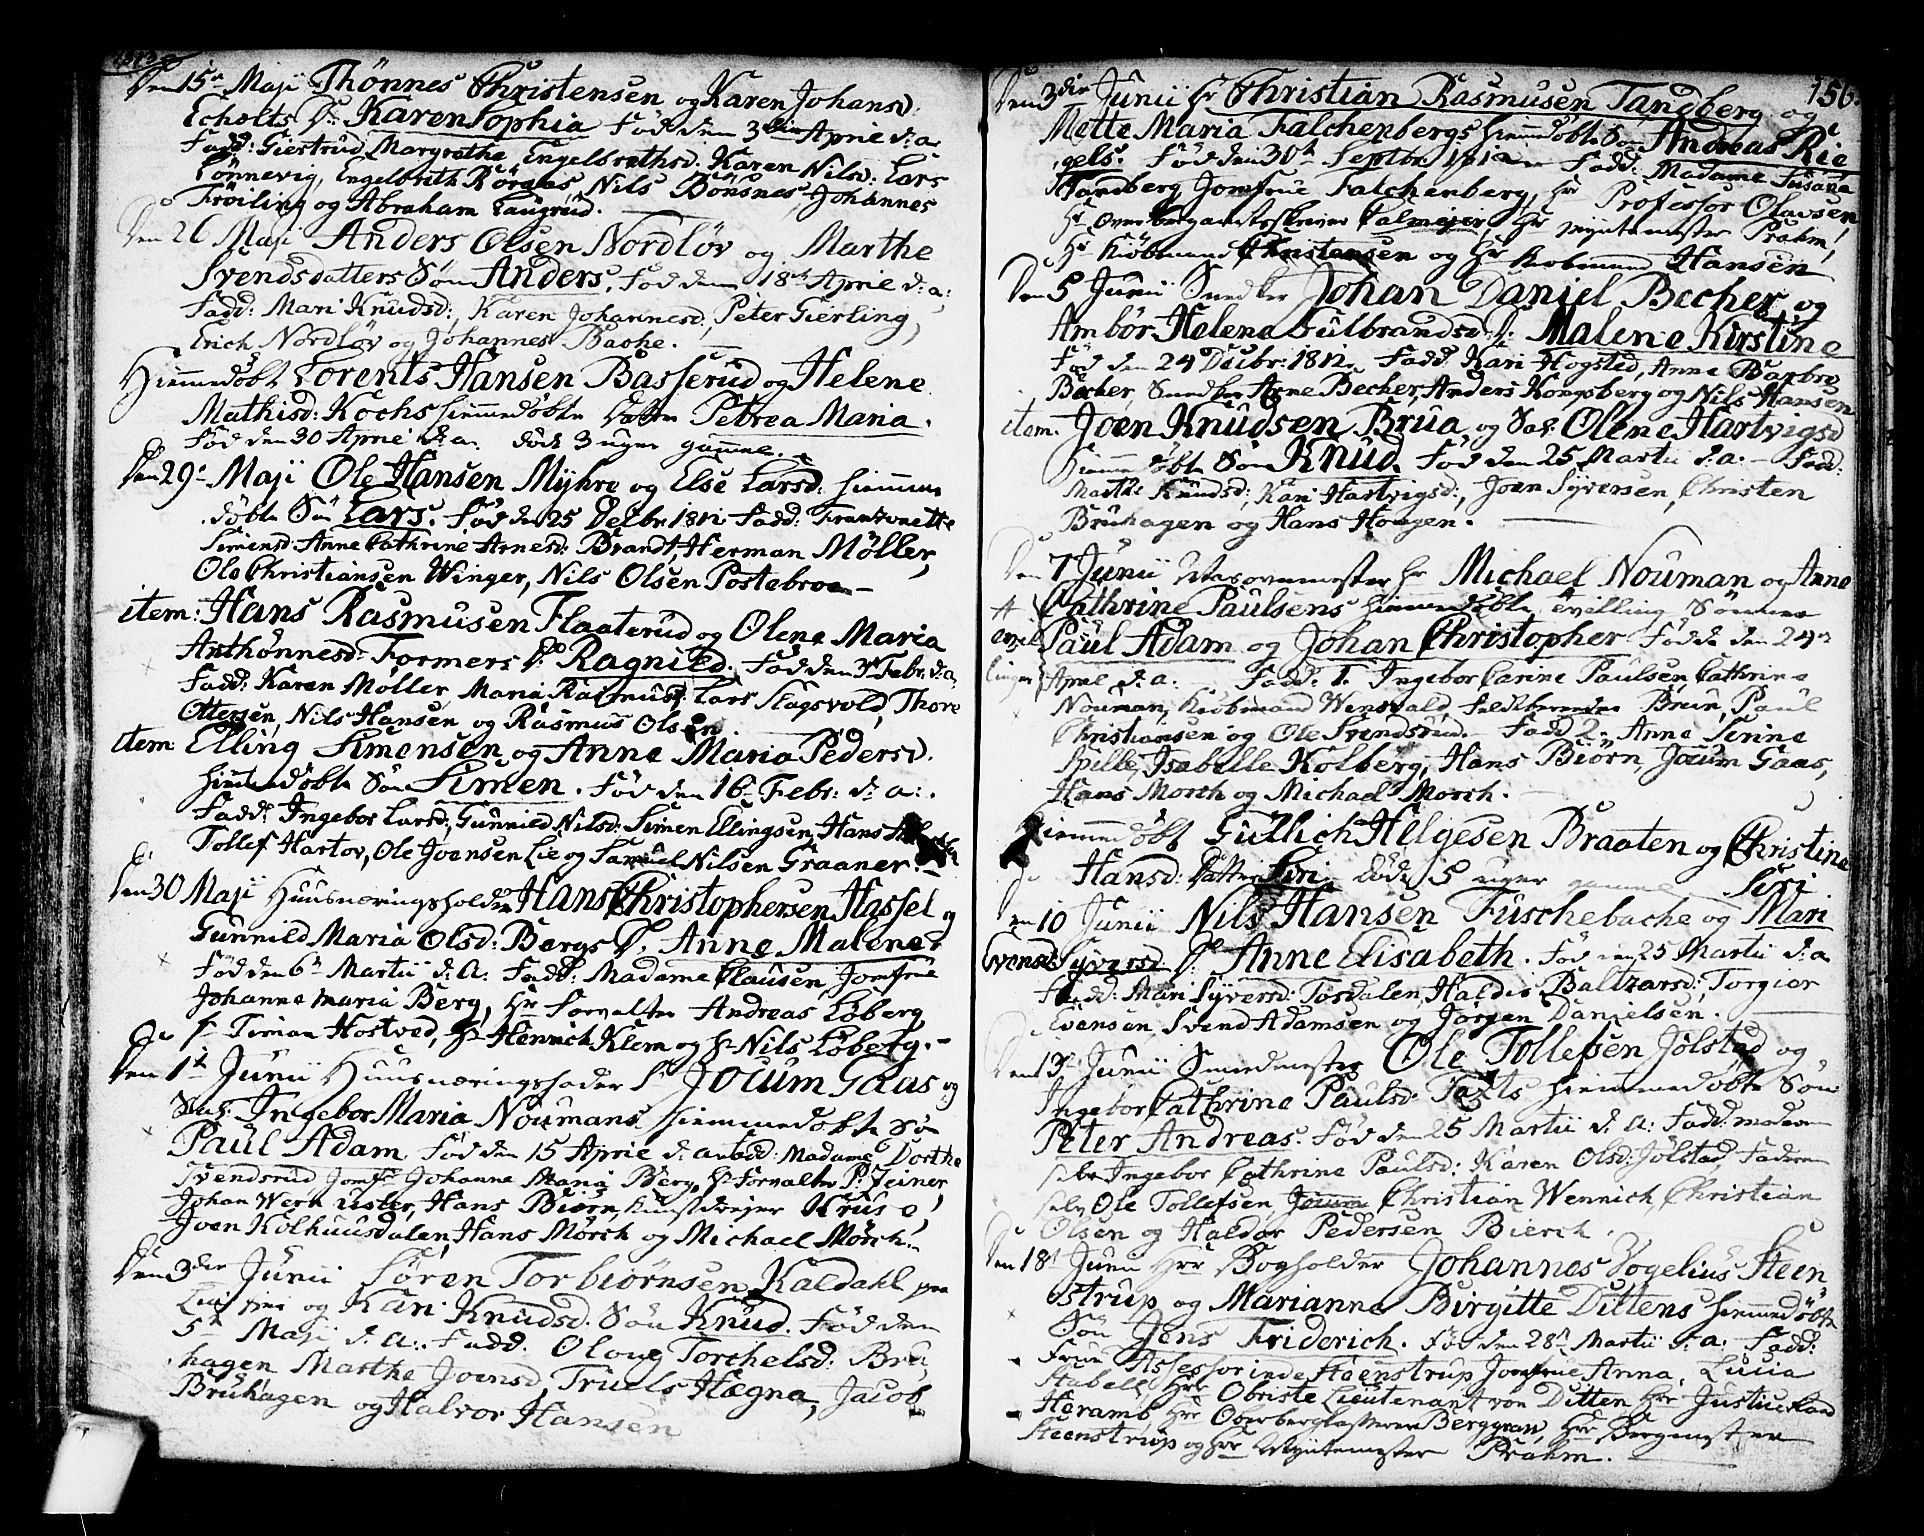 1813
Den 15de Maji Thönnes Christensen og Karen Johansd:
Echolts D: Karen Sophia Föd den 3die April d: a
Fadd: Giertrud Margrethe Engelbrethsd: Karen Nilsd: Lars
Lönnevig, Engelbreth Röraas, Nils Bönsnes, Johannes
Fröiling og Abraham Laugrud.
Den 26 Maji Anders Olsen Nordlöv og Marthe
Svendsdatters Sön Anders. Föd den 18de April d: a:
Fadd: Mari Knudsd:, Karen Johannesd, Peter Gierling,
Erich Nordlöv og Johannes Bache.
Hiemmedöbt Lorents Hansen Basserud og Helene
Mathisd: Kochs hiemmedöbte Datter Petrea Maria.
Föd den 30 April d: a. död 3 uger gammel.
Den 29de Maji Ole Hansen Myhre og Else Larsd: hiemme
döbte Sön Lars. Föd den 25 Decbr 1812 Fadd:
Simensd: Anne Cathrine Arnesd: Brandt, Herman Möller,
Ole Christiansen Winger, Nils Olsen Postebroe
item: Hans Rasmusen Flaaterud og Olene Maria
Anthonnesd: Formers D: Ragnild. Föd den 3de Febr: d: a.
Fadd: Karen Möller, Maria Rasmusd, Lars Slagsvold, Thore
Ottersen, Nils Hansen og Rasmus Olsen
item Elling Simensen og Anne Maria Pedersd.
hiemmedöbte Sön Simen. Föd den 16de Febr: d: a:
Fadd: Ingebor Larsd:, Gunnild Nilsd: Simen Ellingsen, Hans
Tollef Hartov, Ole Joensen Lie og Samuel Nilsen Graaner.
Den 30 Maji Huusnæringsholder Hans Christophersen Hassel og
Gunnild Maria Olsd: Bergs D. Anne Malene
Föd den 6te Martii d: a: Fadd: Madame Clausen, Jomfrue
Johanne Maria Berg, Hr Forvalter Andreas Löberg
Sr Timan Hostved, Sr Henrich Klem og Sr Nils Löberg.
Den 1ste Junii Huusnæringshader Sr Jocum Gaas og
Ingebor Maria Noumans hiemmedöbte Sön
Paul Adam Föd den 15 April d: a Fadd: Madame Dorthe
Svendsrud Jomfr Johanne Maria Berg, Sr Forvalter P: Feiner
Johan Wern, Hans Biörn, Kunstdreier Kruse,
Joen Kolhuusdalen, Hans Mörch og Michael Mörch.
Den 3die Junii Sören Torbiörnsen Kaldahl paa
og Kari Knudsd. Sön Knud. Föd den
5te Maji d: a: Fadd. Oloug Torchelsd: Bru
hagen Marthe Joensd, Truels Hægna, Jacob
Bruhagen og Halvor Hansen
156.
Den 3die Junii Hr Christian Rasmusen Tandberg og
Mette Maria Falchenbergs hiemmedöbte Sön Andreas Rie
gels. Föd den 30te Septbr: 1812 Fadd: Madame Susana
Tandberg, Jomfrue Falchenberg, Hr Professor Olavsen
Hr Overbergamtsskriver Calmeijer, Hr Myntemester Prahm,
Hr Kiöbmand Christensen og Hr Kiöbmand Hansen
Den 5 Junii Snedker Johan Daniel Becher og
Ambör Helene Gulbrandsd: D: Malene Kirstine
Föd den 24 Decbr: 1812. Fadd: Kari Hogsted, Anne Barbro
Becher, Snedker Arne Becher, Anders Kongsberg og Nils Hansen
item. Joen Knudsen Brua og Sal: Olene Hartvigsd
hiemmedöbte Sön Knud. Föd den 25 Martii d: a. Fadd:
Marthe Knudsd:, Kari Hartvigsd:, Joen Syversen, Christen
Bruhagen og Hans Hougen.
Den 7 Junii Hr Michael Nouman og Anne
Cathrine Paulsens hiemmedöbte tvilling Sönner
Paul Adam og Johan Christopher Födde den 24de
April d: a. Fadd: 1. Ingebor Carine Paulsen, Cathrine
Nouman, Kiöbmand Wensvald, Feldtbereder Brun, Paul
Christiansen og Ole Svendsrud. Fadd 2. Anne Serine
Spille, Isabelle Kolberg, Hans Biörn, Jocum Gaas,
Hans Morch og Michael Morch.
Hiemmedöbt Gullich Helgesen Braaten og Christine
Hansd: Datter Siri döde 5 uger gammel Siri
Den 10 Junii Nils Hansen Fuschebache og Mari
Svensd: Syversd: D: Anne Elisabeth. Föd den 25 Martii d: a
Fadd: Mari Syversd: Tosdalen, Haldis Baltzarsd:, Torgier
Evensen, Svend Adamsen og Jörgen Danielsen.
Den 13 Junii Smedmester Ole Tollefsen Jölstad og
Ingebor Cathrine Paulsd: hiemmedöbte Sön
Peter Andreas. Föd den 25 Martii d: a: Fadd: moderen
selv Ingebor Cathrine Paulsd: Karen Olsd: Jölstad, Faderen
selv Ole Tollefsen Christian Wennich, Christian
Olsen og Haldor Pedersen Bierch.
Den 18de Junii Hr Bogholder Johannes Vogelius Steen
strup og Marianne Birgitte Dittens hiemmedöbte
Sön Jens Friderich. Föd den 28de Martii d: a: Fadd:
Frue Assessorinde Steenstrup, Jomfrue Anna Lucia
Stabell, Hr Obriste Lieutenant von Ditten, Hr Justitsraad
Heramb, Hr Oberbergamtsassessor Berggrav, Hr Bergmester
Steenstrup og Hr Myntemester Prahm.